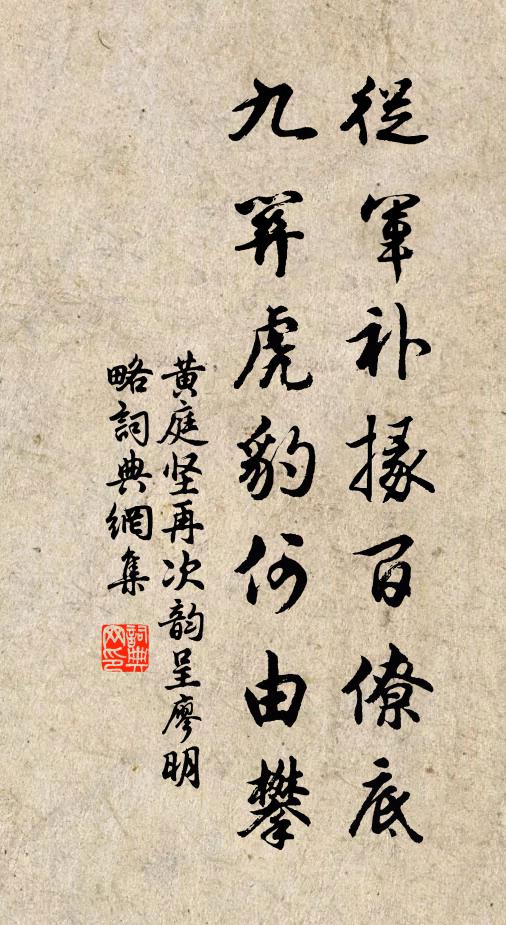 從軍補掾百僚底
九關虎豹何由攀
黄庭坚再次韵呈廖明
略詞典網集
詞典
网印